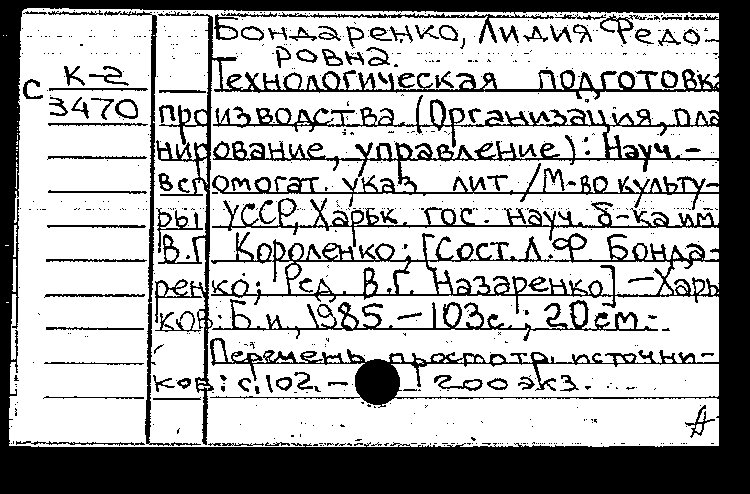 Бондаренко, Лидия Федо-
ровна.
С К-2
3470
Технологическая подготовка
производства. (Организация, пла
нирование, управление): Науч.-
вспомогат. указ. лит. /М-во культу-
ры УССР, Харьк. гос. науч. б-ка им
В.Г. Короленко; [Сост. Л.Ф Бонда-
ренко; Ред. В.Г. Назаренко] —Харь
ков: Б.и., 1985.-103с.; 20см.-
Перечень просмотр. источни-
ков: с.102. - 1200 экз.